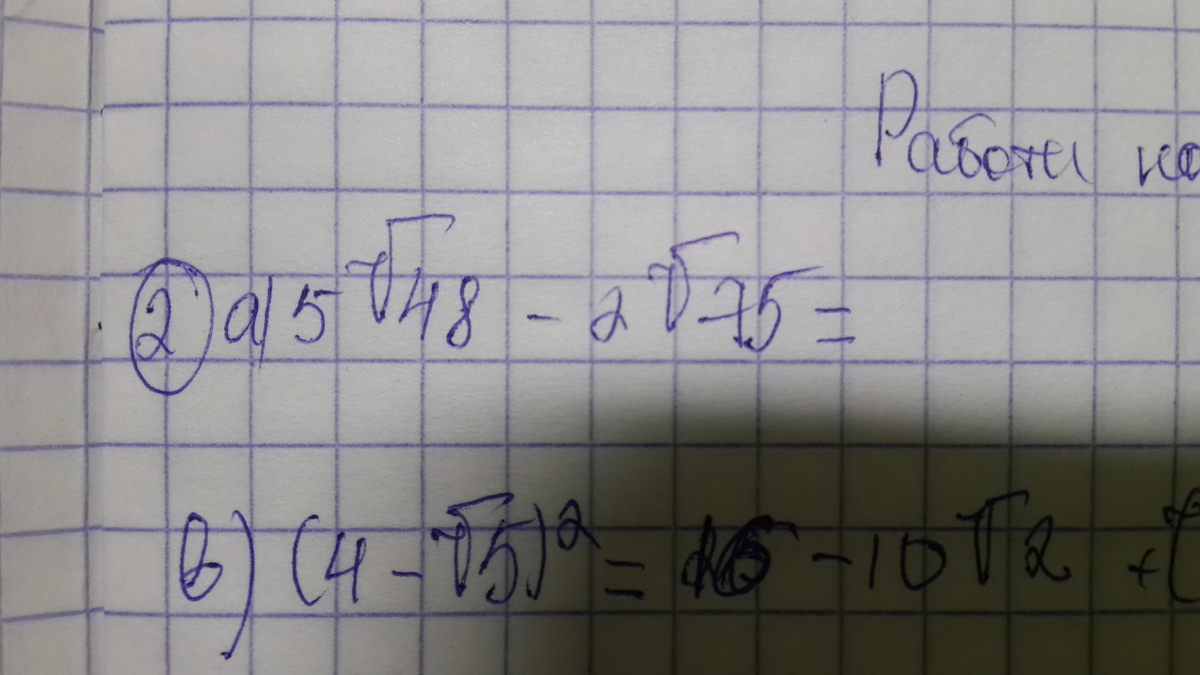 Работа
② а) 5√48 - 2√75 =
в) (4 - √5)² = - 10√2 + (